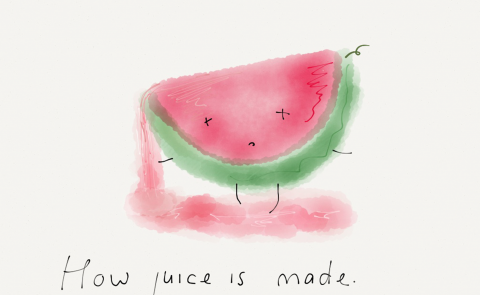 How juice is made.